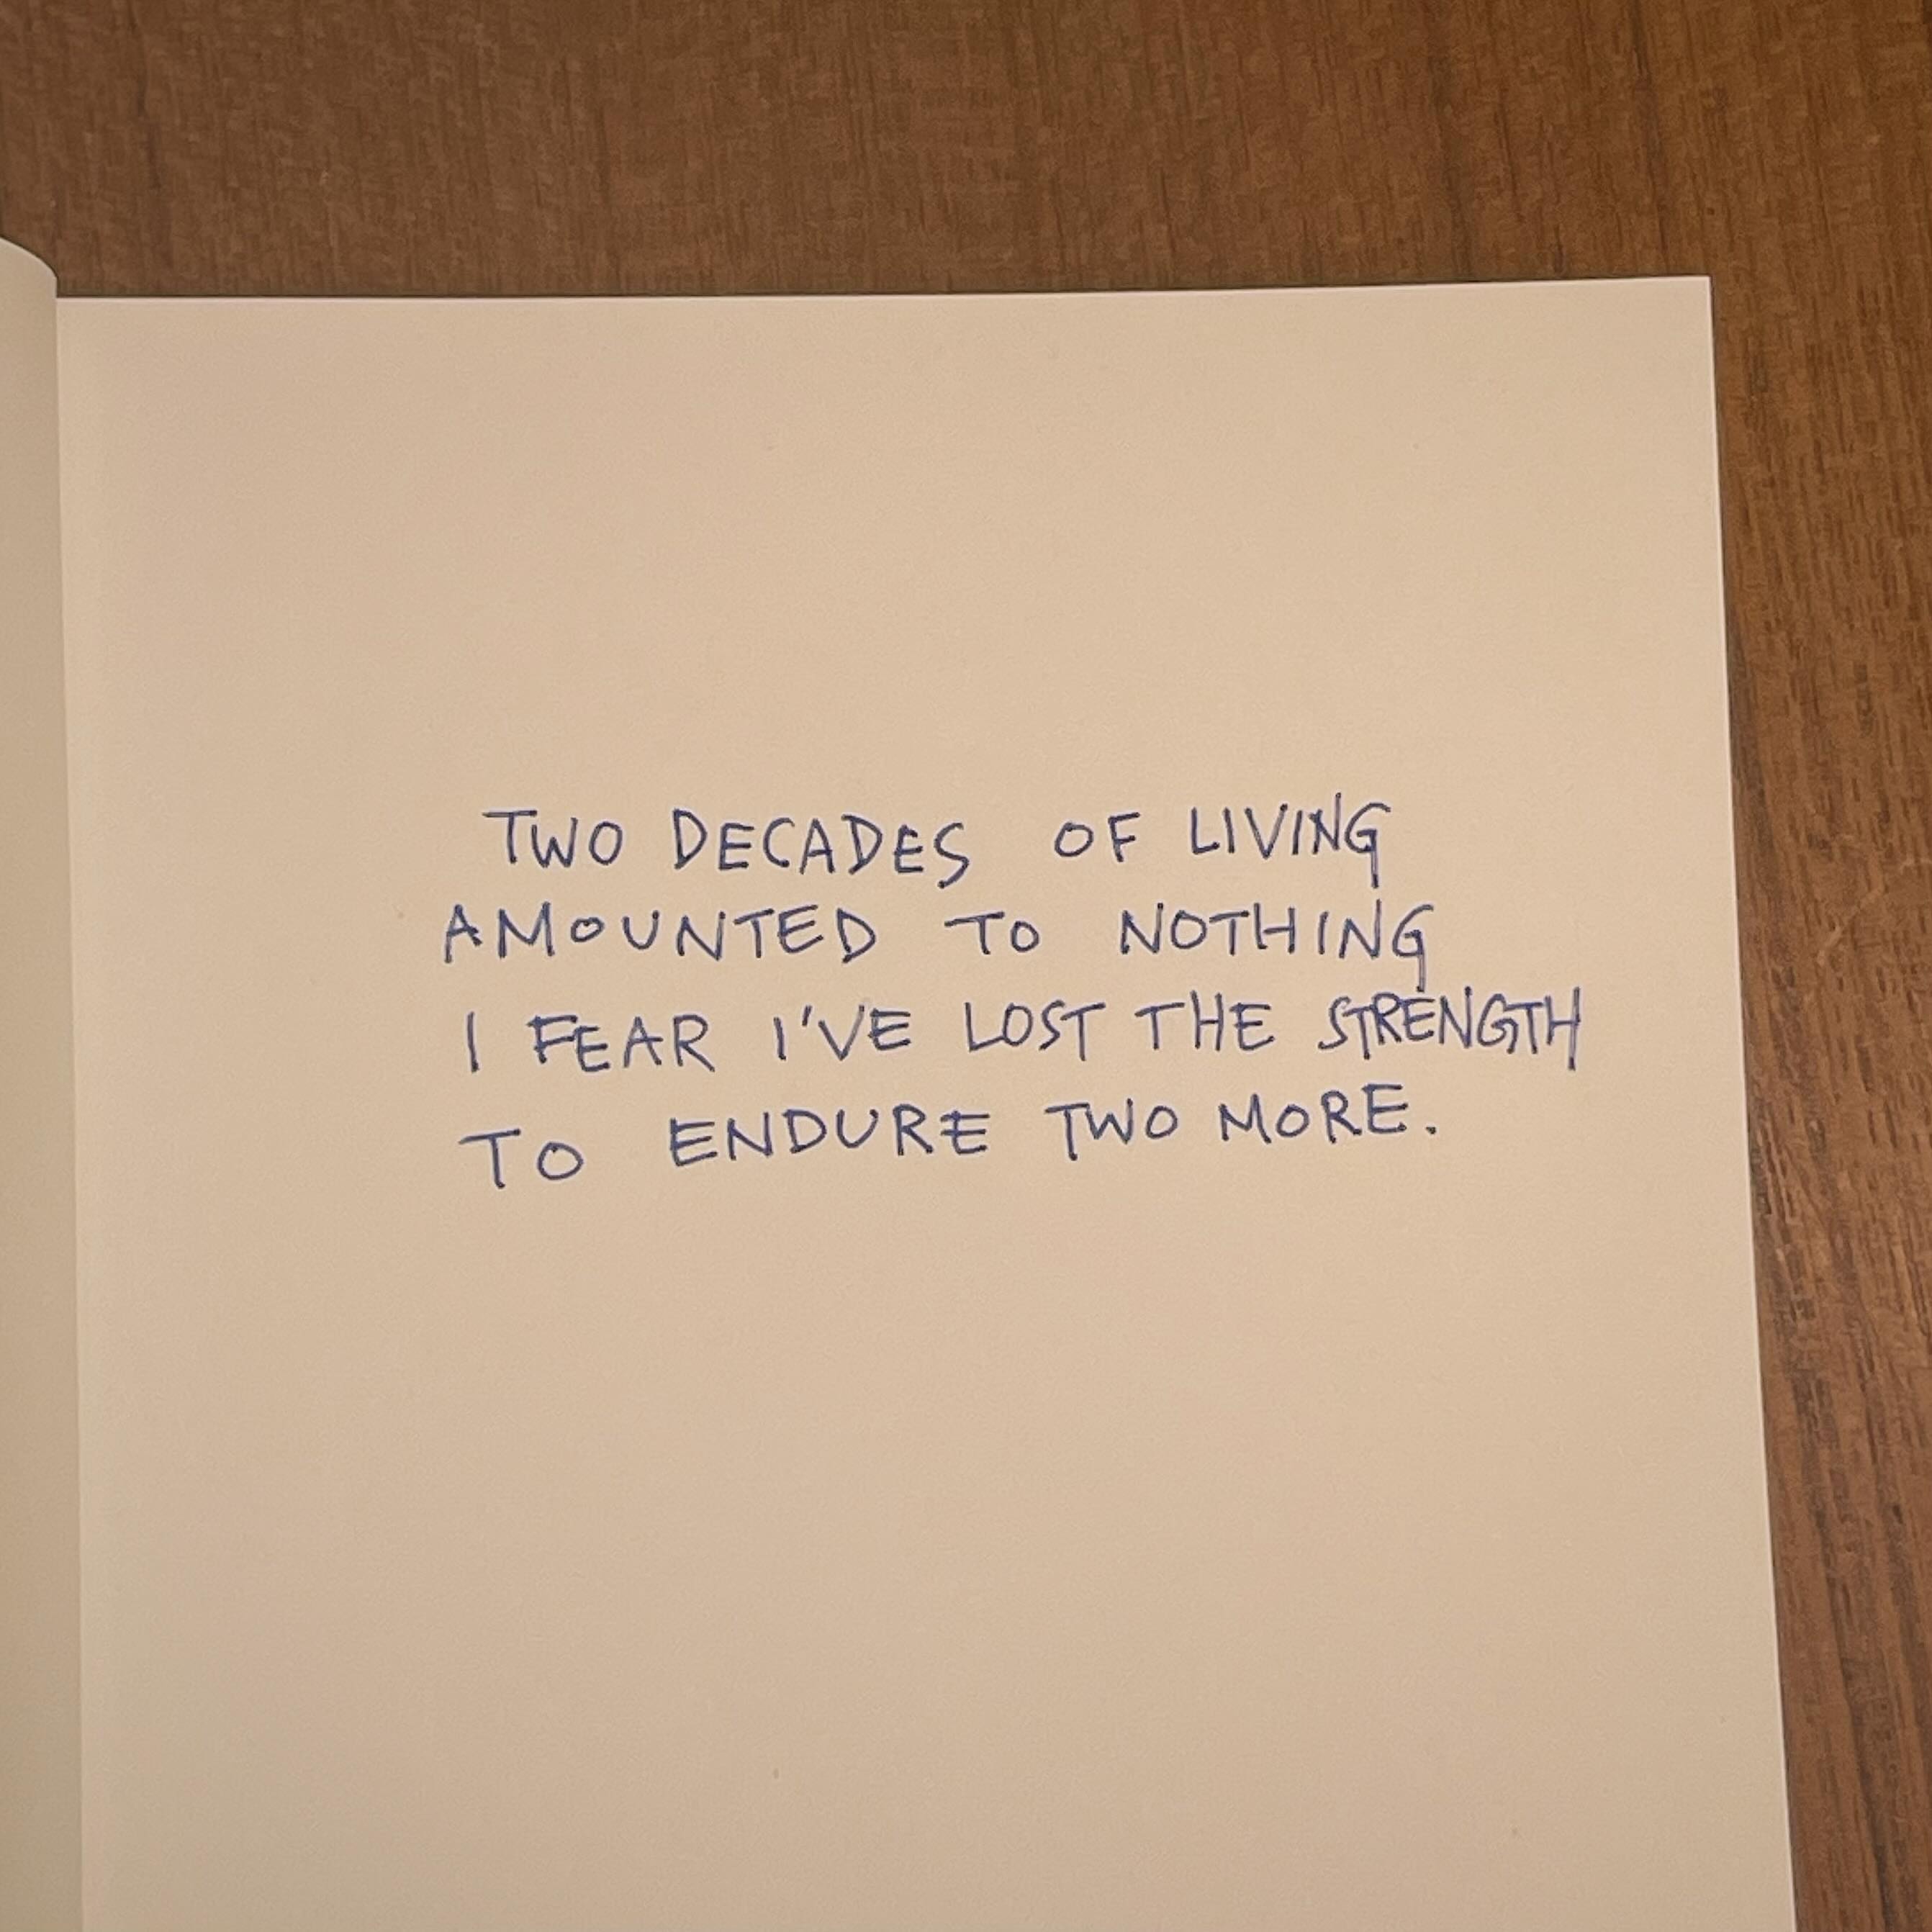 TWO DECADES OF LIVING
AMOUNTED TO NOTHING
I FEAR I'VE LOST THE STRENGTH
TO ENDURE TWO MORE.